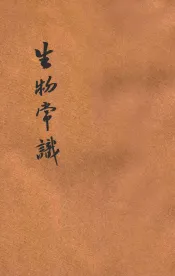 生物常識